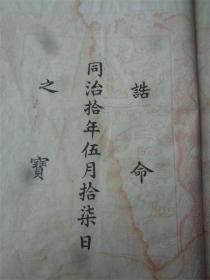 誥命
同治拾年伍月拾柒日
之寶